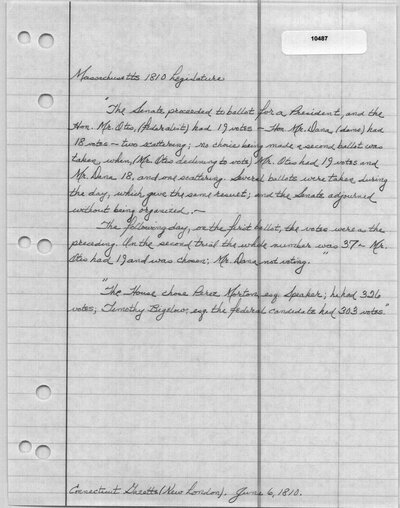 10487
Massachusetts 1810 Legislature
"The Senate proceeded to ballot for a President, and the
Hon. Mr. Otis, (federalist) had 19 votes - Hon Mr. Dana (demo) had
18 votes - two scattering; no choice being made a second ballot was
taken when, (Mr. Otis declining to vote) Mr. Otis had 19 votes and
Mr. Dana 18, and one scattering. Several ballots were taken during
the day, which gave the same result; and the Senate adjourned
without being organized. -
The following day, on the first ballot, the votes were as the
preceding. On the second trial the whole number was 37 - Mr.
Otis had 19 and was chosen; Mr. Dana not voting. "
"The House chose Perez Morton, esq. Speaker; he had 326
votes; Timothy Bigelow, esq. the federal candidate had 303 votes"
Connecticut Gazette (New London). June 6, 1810.